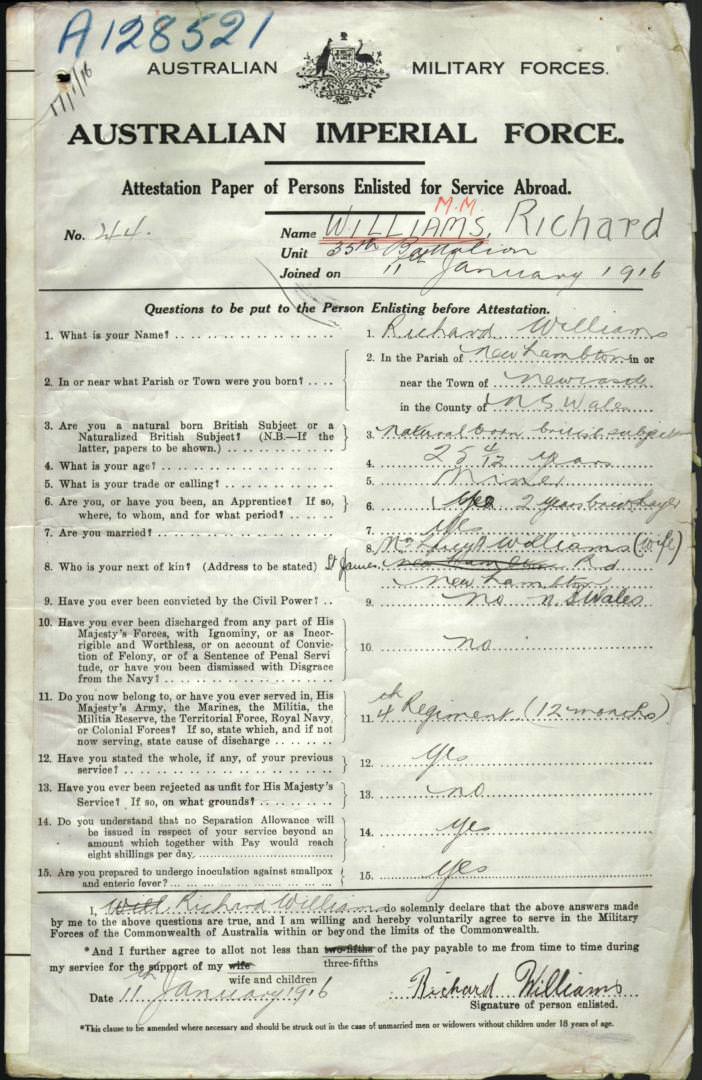 A128521
17/1/16
AUSTRALIAN MILITARY FORCES.
AUSTRALIAN IMPERIAL FORCE.
Attestation Paper of Persons Enlisted for Service Abroad.
M.M
No. 44. Name WILLIAMS, Richard
Unit 35th Battalion
Joined on 11th January 1916
Questions to be put to the Person Enlisting before Attestation.
1. What is your Name? 1. Richard Williams
2. In or near what Parish or Town were you born? 2. In the Parish of New Lambton in or
near the Town of Newcastle
in the County of N S Wales
3. Are you a natural born British Subject or a
Naturalized British Subject? (N.B.—If the
latter, papers to be shown.) 3. Natural born british subject
4. What is your age? 4. 25 4/12 years
5. What is your trade or calling? 5. Miner
6. Are you, or have you been, an Apprentice? If so,
where, to whom, and for what period? 6. Yes 2 years bricklayer
7. Are you married? 7. Yes
8. Who is your next of kin? (Address to be stated) 8. Mrs Williams (wife)
St James Rd
New Lambton
N. S Wales
9. Have you ever been convicted by the Civil Power? 9. no
10. Have you ever been discharged from any part of His
Majesty's Forces, with Ignominy, or as Incor-
rigible and Worthless, or on account of Convic-
tion of Felony, or of a Sentence of Penal Servi
tude, or have you been dismissed with Disgrace
from the Navy? 10. no
11. Do you now belong to, or have you ever served in, His
Majesty's Army, the Marines, the Militia, the
Militia Reserve, the Territorial Force, Royal Navy,
or Colonial Forces? If so, state which, and if not
now serving, state cause of discharge 11. 4th Regiment (12 months)
12. Have you stated the whole, if any, of your previous
service? 12. Yes
13. Have you ever been rejected as unfit for His Majesty's
Service? If so, on what grounds? 13. no
14. Do you understand that no Separation Allowance will
be issued in respect of your service beyond an
amount which together with Pay would reach
eight shillings per day. 14. yes
15. Are you prepared to undergo inoculation against smallpox
and enteric fever? 15. yes
I, Will Richard Williams do solemnly declare that the above answers made
by me to the above questions are true, and I am willing and hereby voluntarily agree to serve in the Military
Forces of the Commonwealth of Australia within or beyond the limits of the Commonwealth.
*And I further agree to allot not less than two-fifths of the pay payable to me from time to time during
three-fifths
my service for the support of my wife
wife and children
Date 11th January 1916 Richard Williams
Signature of person enlisted.
*This clause to be amended where necessary and should be struck out in the case of unmarried men or widowers without children under 18 years of age.